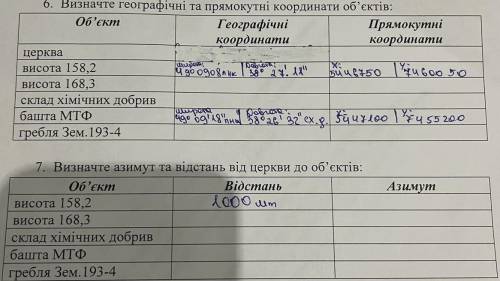 6. Визначте географічні та прямокутні координати об’єктів:
Об’єкт Географічні координати Прямокутні координати
церква
висота 158,2 широта: 49°09'08" пнш Довгота: 38° 27' 11" X: 5446750 Y: 7460050
висота 168,3
склад хімічних добрив
башта МТФ широта 49° 09' 18" пнш Довгота: 38° 26' 32" сх.д. X: 5447100 Y: 7455200
гребля Зем.193-4
7. Визначте азимут та відстань від церкви до об’єктів:
Об’єкт Відстань Азимут
висота 158,2 1000 мт
висота 168,3
склад хімічних добрив
башта МТФ
гребля Зем.193-4